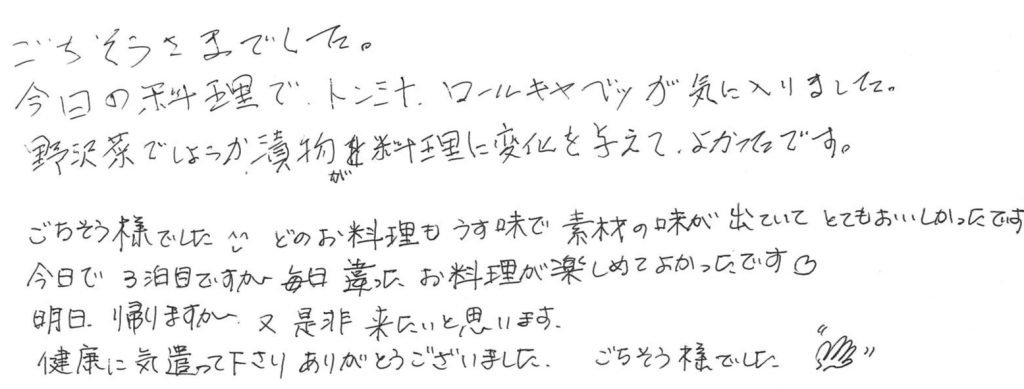 ごちそうさまでした。
今日の料理で、トン汁、ロールキャベツが気に入りました。
野沢菜でしょうか、漬物が料理に変化を与えて、よかったです。
ごちそう様でした どのお料理もうす味で素材の味が出ていてとてもおいしかったです
今日で3泊目ですが毎日違ったお料理が楽しめてよかったです
明日、帰りますが、又是非来たいと思います。
健康に気遣って下さりありがとうございました。 ごちそう様でした